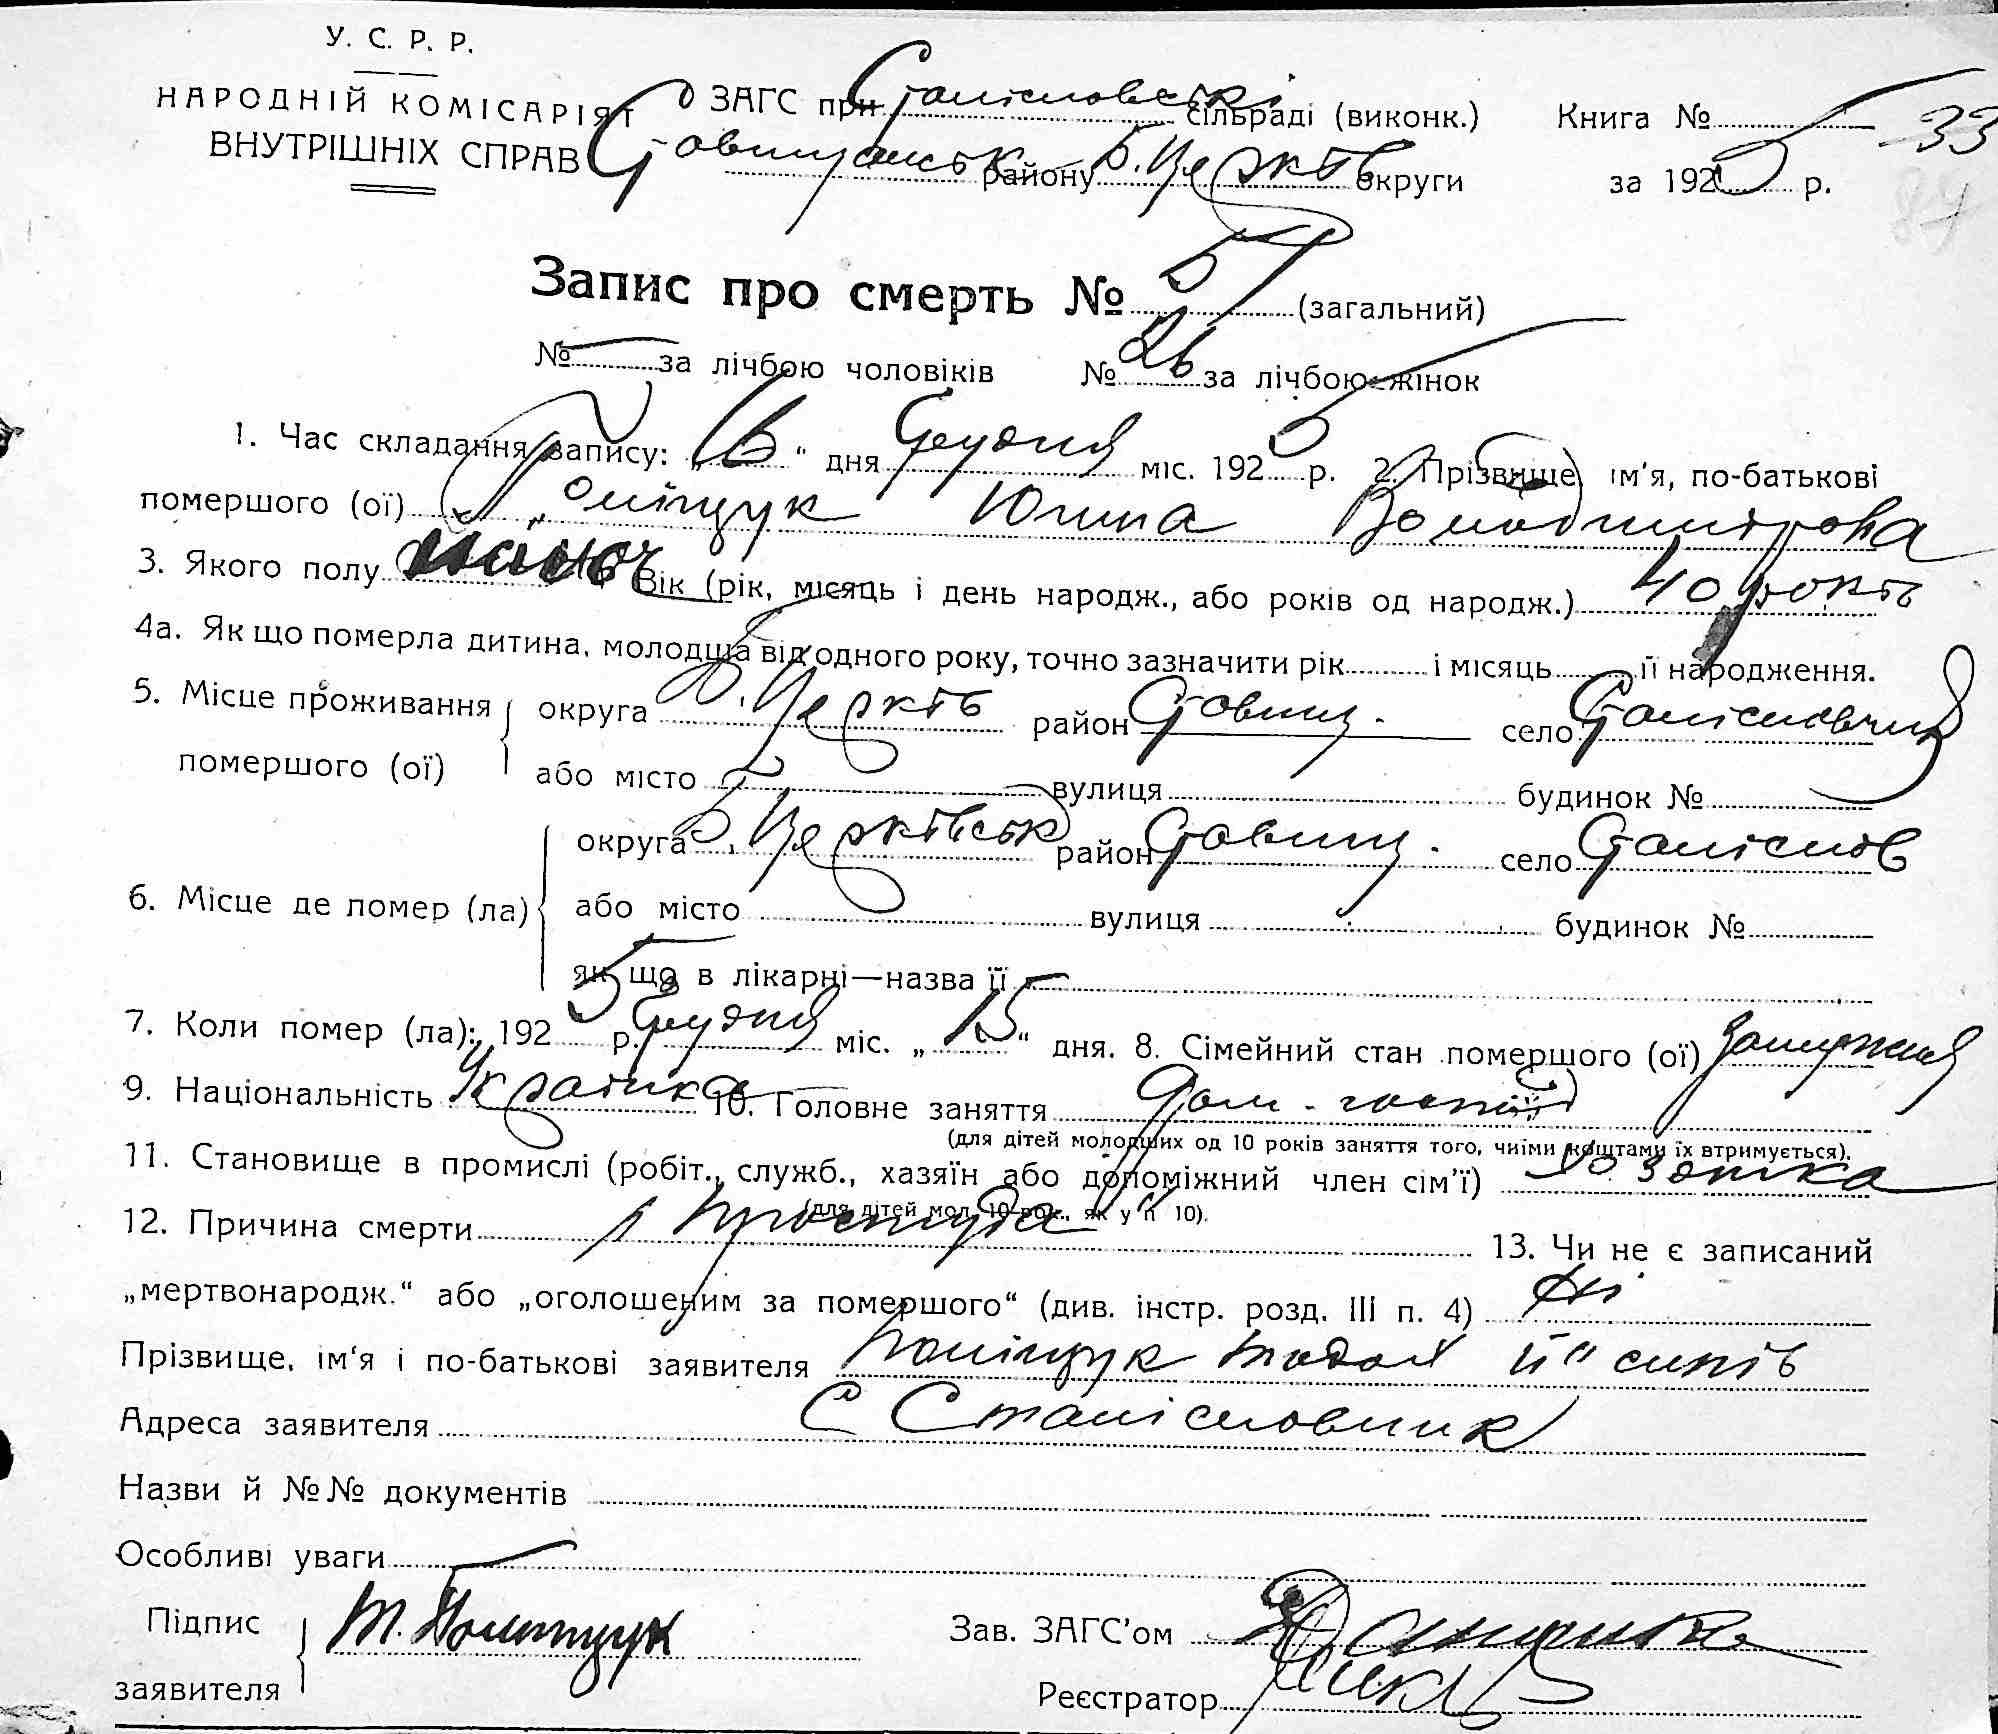 У. С. Р. Р.
НАРОДНІЙ КОМІСАРІЯТ
ВНУТРІШНІХ СПРАВ
ЗАГС при Станіславськ сільраді (виконк.) Книга № 33
Ставищанськ району Б. Церків округи за 1925 р.
87
Запис про смерть № 51 (загальний)
№ — за лічбою чоловіків № 26 за лічбою жінок
1. Час складання запису: „16“ дня Грудня міс. 1925 р. 2. Прізвище, ім'я, по-батькові
помершого (ої) Поліщук Юлина Володимирова
3. Якого полу Вік (рік, місяць і день народж., або років од народж.) 40 років
4а. Як що померла дитина, молодща від одного року, точно зазначити рік і місяць її народження.
5. Місце проживання помершого (ої) округа Б. Церків район Ставищ. село Станіславчик
або місто вулиця будинок №
6. Місце де помер (ла) округа Б. Церківськ район Ставищ. село Станіслов
або місто вулиця будинок №
як що в лікарні—назва її —
7. Коли помер (ла): 1925 р. Грудня міс. „15“ дня. 8. Сімейний стан помершого (ої) замужня
9. Національність Українка 10. Головне заняття Дом.
(для дітей молодших од 10 років заняття того, чиїми коштами їх втримується).
11. Становище в промислі (робіт., служб., хазяїн або допоміжний член сім'ї)
(для дітей мол. 10 рок., як у п 10).
12. Причина смерти простуда 13. Чи не є записаний
„мертвонародж.“ або „оголошеним за помершого“ (див. інстр. розд. III п. 4) Ні
Прізвище, ім'я і по-батькові заявителя Поліщук Тодох
Адреса заявителя С Станіславчик
Назви й №№ документів
Особливі уваги —
Підпис заявителя Т. Поліщук
Зав. ЗАГС'ом
Реєстратор